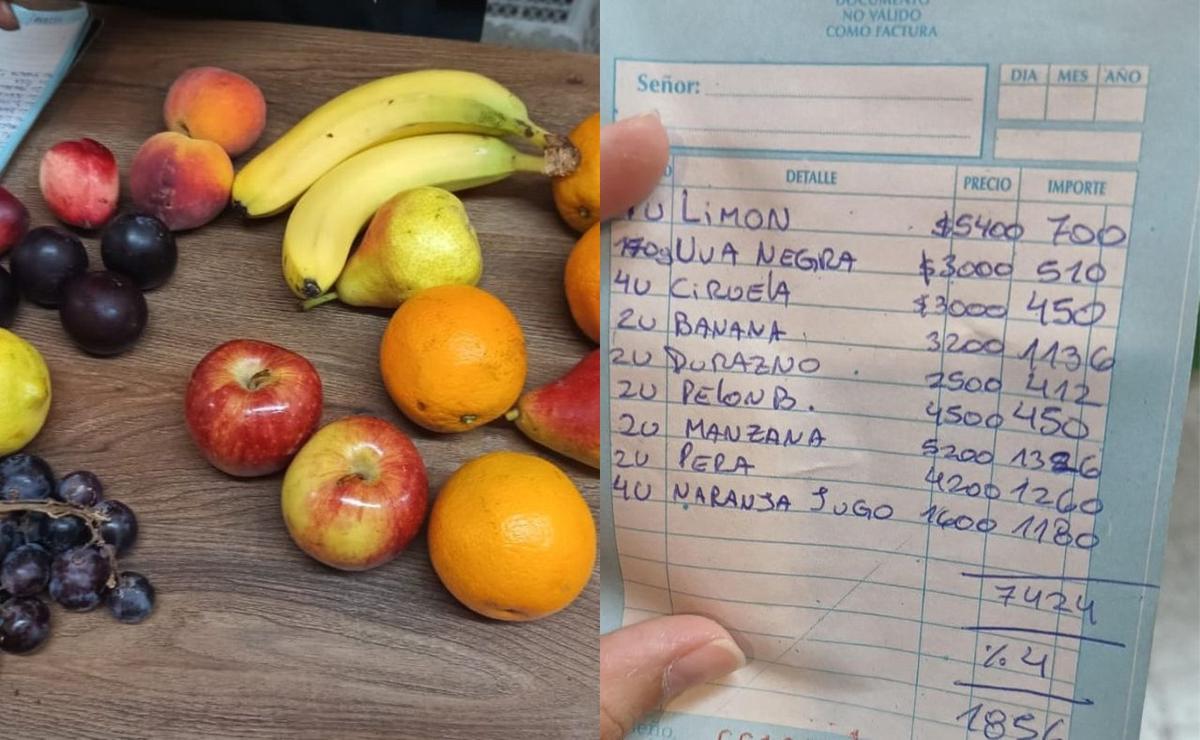 DOCUMENTO
NO VALIDO
COMO FACTURA
Señor:
DIA MES AÑO
DETALLE PRECIO IMPORTE
1U LIMON $5400 700
170g UVA NEGRA $3000 510
4U CIRUELA $3000 450
2U BANANA 3200 1136
2U DURAZNO 2500 412
2U PELON B. 4500 450
2U MANZANA 5200 1386
2U PERA 4200 1260
4U NARANJA JUGO 1600 1180
7424
% 4
1856